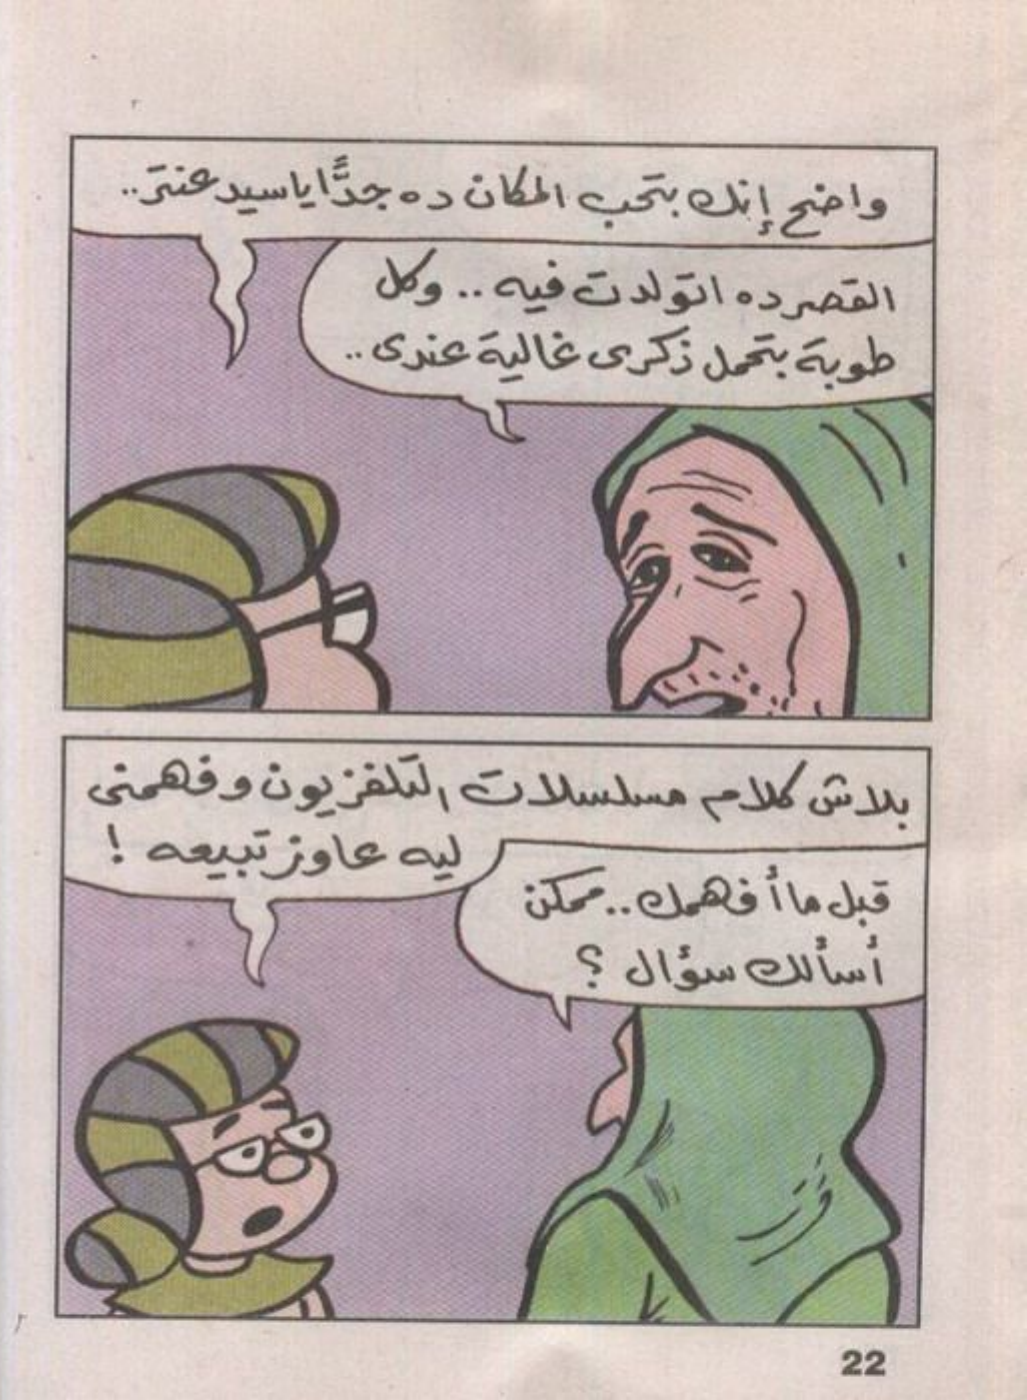 واضح إنك بتحب المكان ده جدًّا يا سيد عنتر..
القصر ده اتولدت فيه .. وكل
طوبة بتحمل ذكرى غالية عندى ..
بلاش كلام مسلسلات التلفزيون وفهمنى
ليه عاوز تبيعه !
قبل ما أفهمك .. ممكن
أسألك سؤال ؟
22